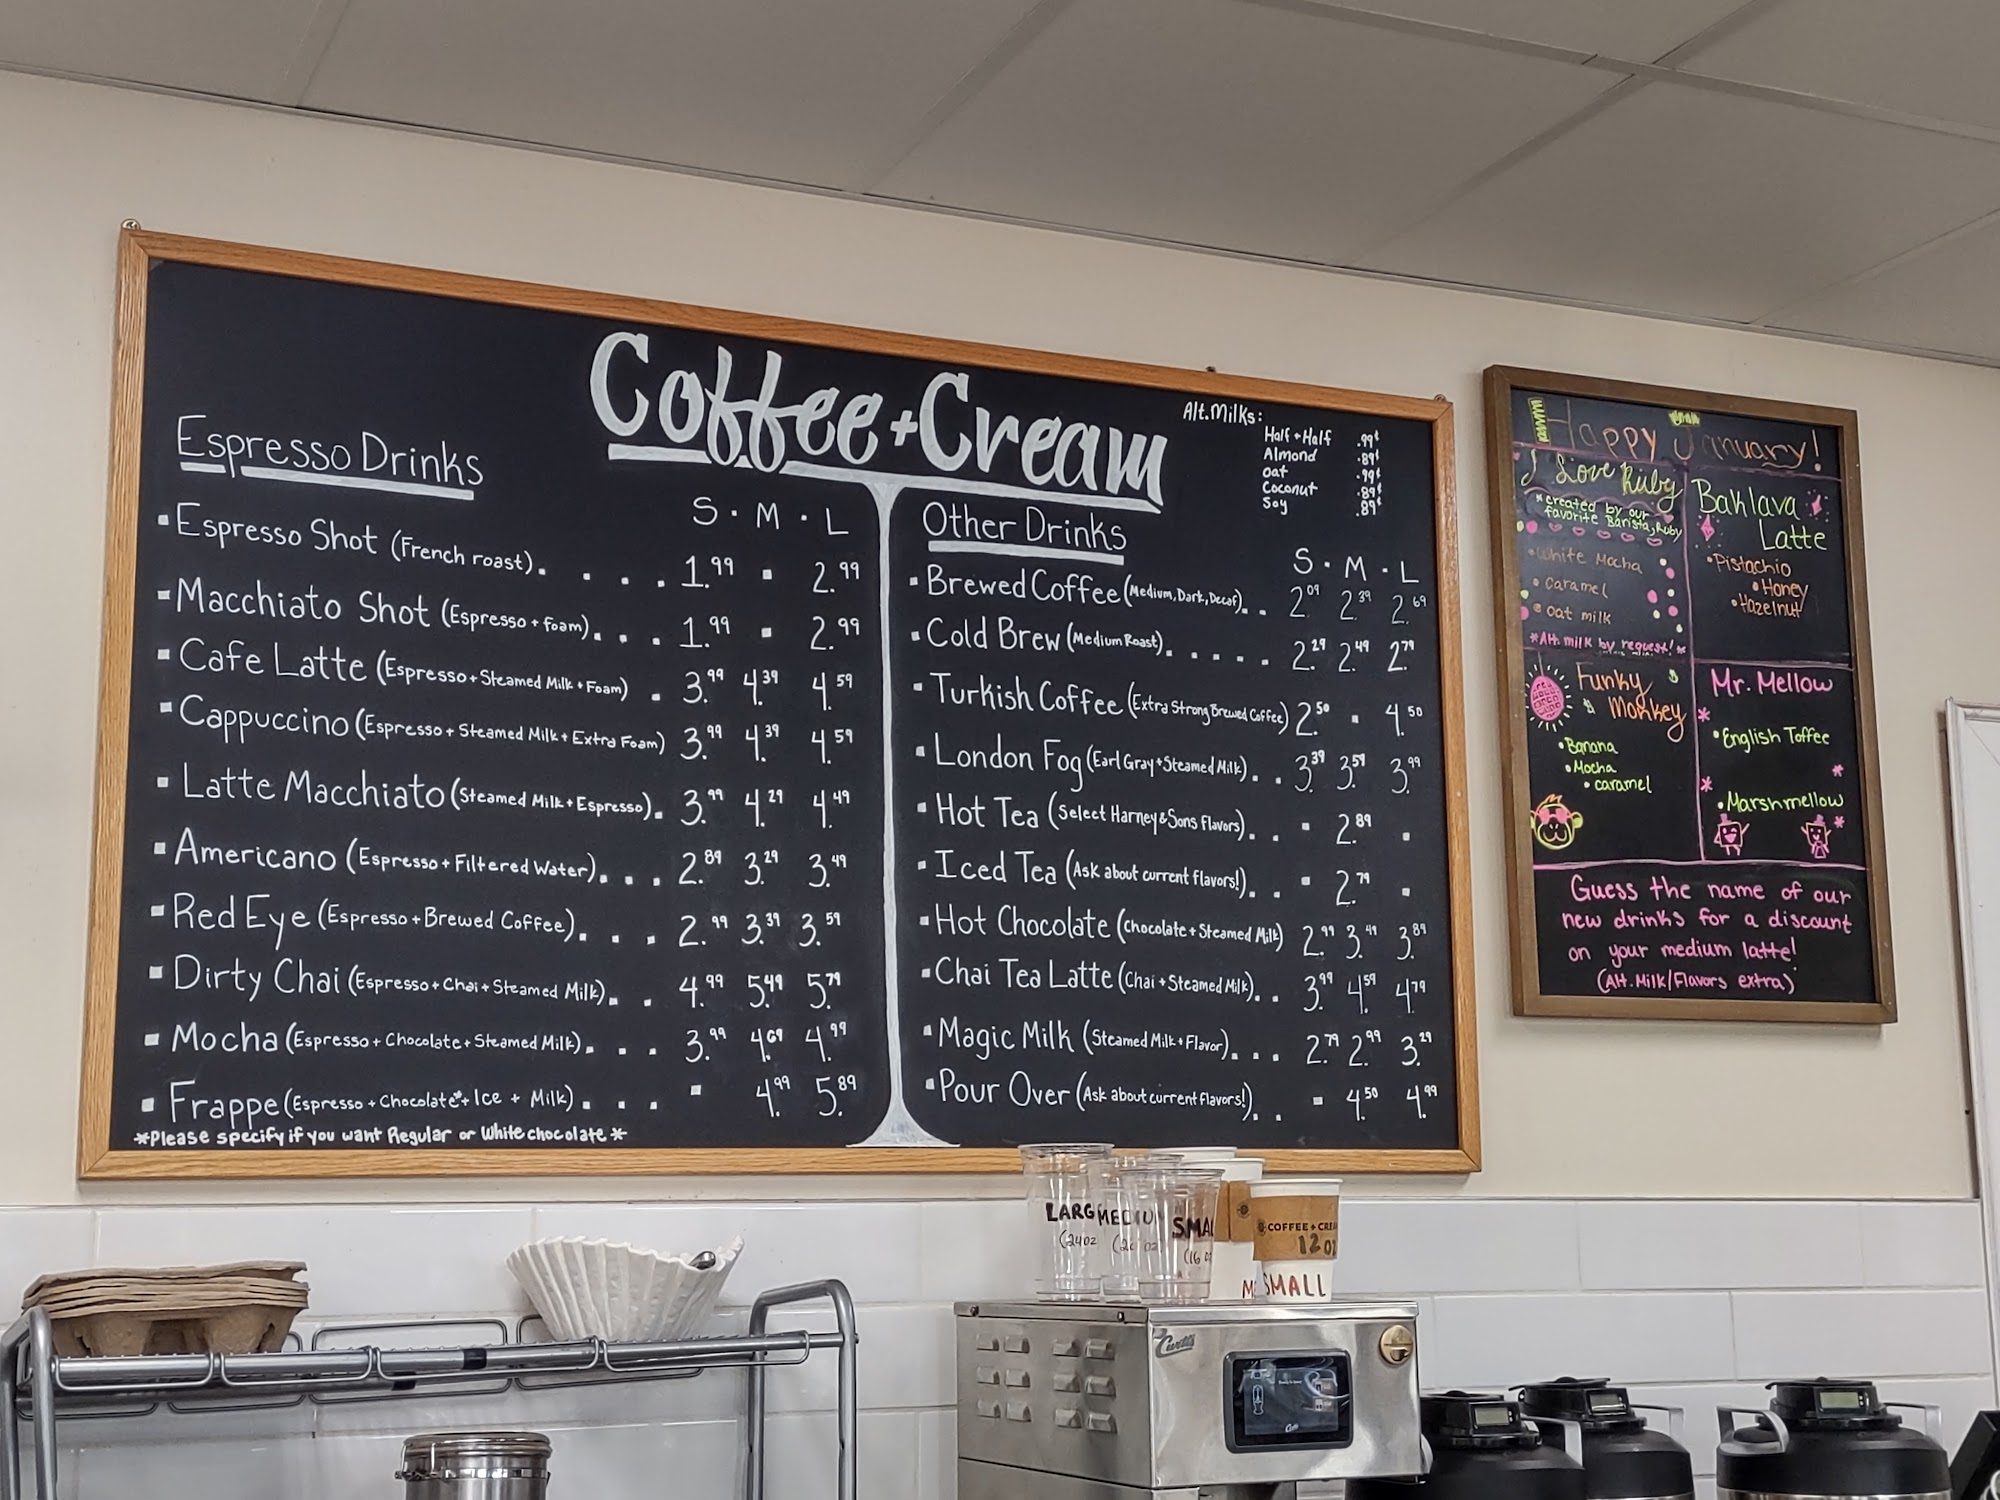 Coffee + Cream
Alt. Milks:
Half + Half .99¢
Almond .89¢
Oat .99¢
Coconut .89¢
Soy .89¢
Espresso Drinks
S · M · L
Espresso Shot (French roast) . . . . . 1.99 · 2.99
Macchiato Shot (Espresso + foam) . . . 1.99 · 2.99
Cafe Latte (Espresso + Steamed Milk + Foam) . 3.99 4.39 4.59
Cappuccino (Espresso + Steamed Milk + Extra Foam) 3.99 4.39 4.59
Latte Macchiato (Steamed Milk + Espresso) . 3.99 4.29 4.49
Americano (Espresso + Filtered Water) . . . 2.89 3.29 3.49
Red Eye (Espresso + Brewed Coffee) . . . 2.99 3.39 3.59
Dirty Chai (Espresso + Chai + Steamed Milk) . . 4.99 5.49 5.79
Mocha (Espresso + Chocolate + Steamed Milk) . . . 3.99 4.69 4.99
Frappe (Espresso + Chocolate* + Ice + Milk) . . . · 4.99 5.89
*Please specify if you want Regular or White chocolate*
Other Drinks
S · M · L
Brewed Coffee (Medium, Dark, Decaf) . . 2.09 2.39 2.69
Cold Brew (Medium Roast) . . . . . 2.29 2.49 2.79
Turkish Coffee (Extra Strong Brewed Coffee) 2.50 · 4.50
London Fog (Earl Gray + Steamed Milk) . . 3.39 3.59 3.99
Hot Tea (Select Harney & Sons flavors) . . · 2.89 ·
Iced Tea (Ask about current flavors!) . . · 2.79 ·
Hot Chocolate (Chocolate + Steamed Milk) 2.99 3.49 3.89
Chai Tea Latte (Chai + Steamed Milk) . . 3.99 4.59 4.79
Magic Milk (Steamed Milk + Flavor) . . . 2.79 2.99 3.29
Pour Over (Ask about current flavors!) . . · 4.50 4.99
Happy January!
I Love Ruby
*created by our
favorite Barista, Ruby
• White Mocha
• Caramel
• oat milk
*Alt. milk by request!*
Baklava
Latte
• Pistachio
• Honey
• Hazelnut
Funky
Monkey
• Banana
• Mocha
• caramel
Mr. Mellow
• English Toffee
• Marshmellow
Guess the name of our
new drinks for a discount
on your medium latte!
(Alt. Milk/Flavors extra)
LARG
(24oz
MEDIU
SMA
(16
COFFEE + CRE
12 oz
SMALL
Curtis